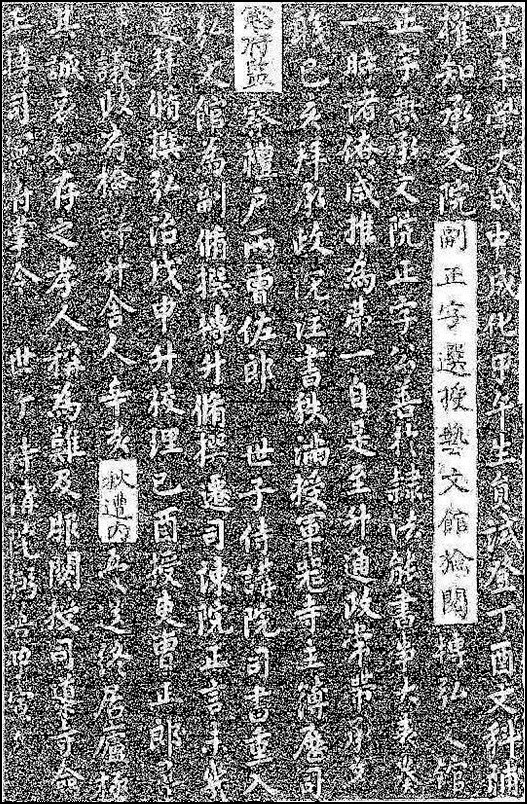 早年學大成中成化甲午生員試登丁酉文科補
權知承文院副正字選授藝文館檢閱轉弘文館
正字兼承文院正字公善於隸法能書
一時諸僚咸推為第一自是至升通政常帶承文
職己亥拜承政院注書秩滿授軍器寺主簿歷司
憲府監察禮戶兩曹佐郎 世子侍講院司書重入
弘文館為副脩撰轉升脩撰遷司諫院正言未幾
還拜脩撰弘治戊申升校理己酉授吏曹正郎尋
議政府檢詳升舍人辛亥秋遭內艱送終居廬極
其誠哀如存之孝人稱為難及服闋授司導寺僉
正轉司憲府掌令 世子侍講院弼善甲寅